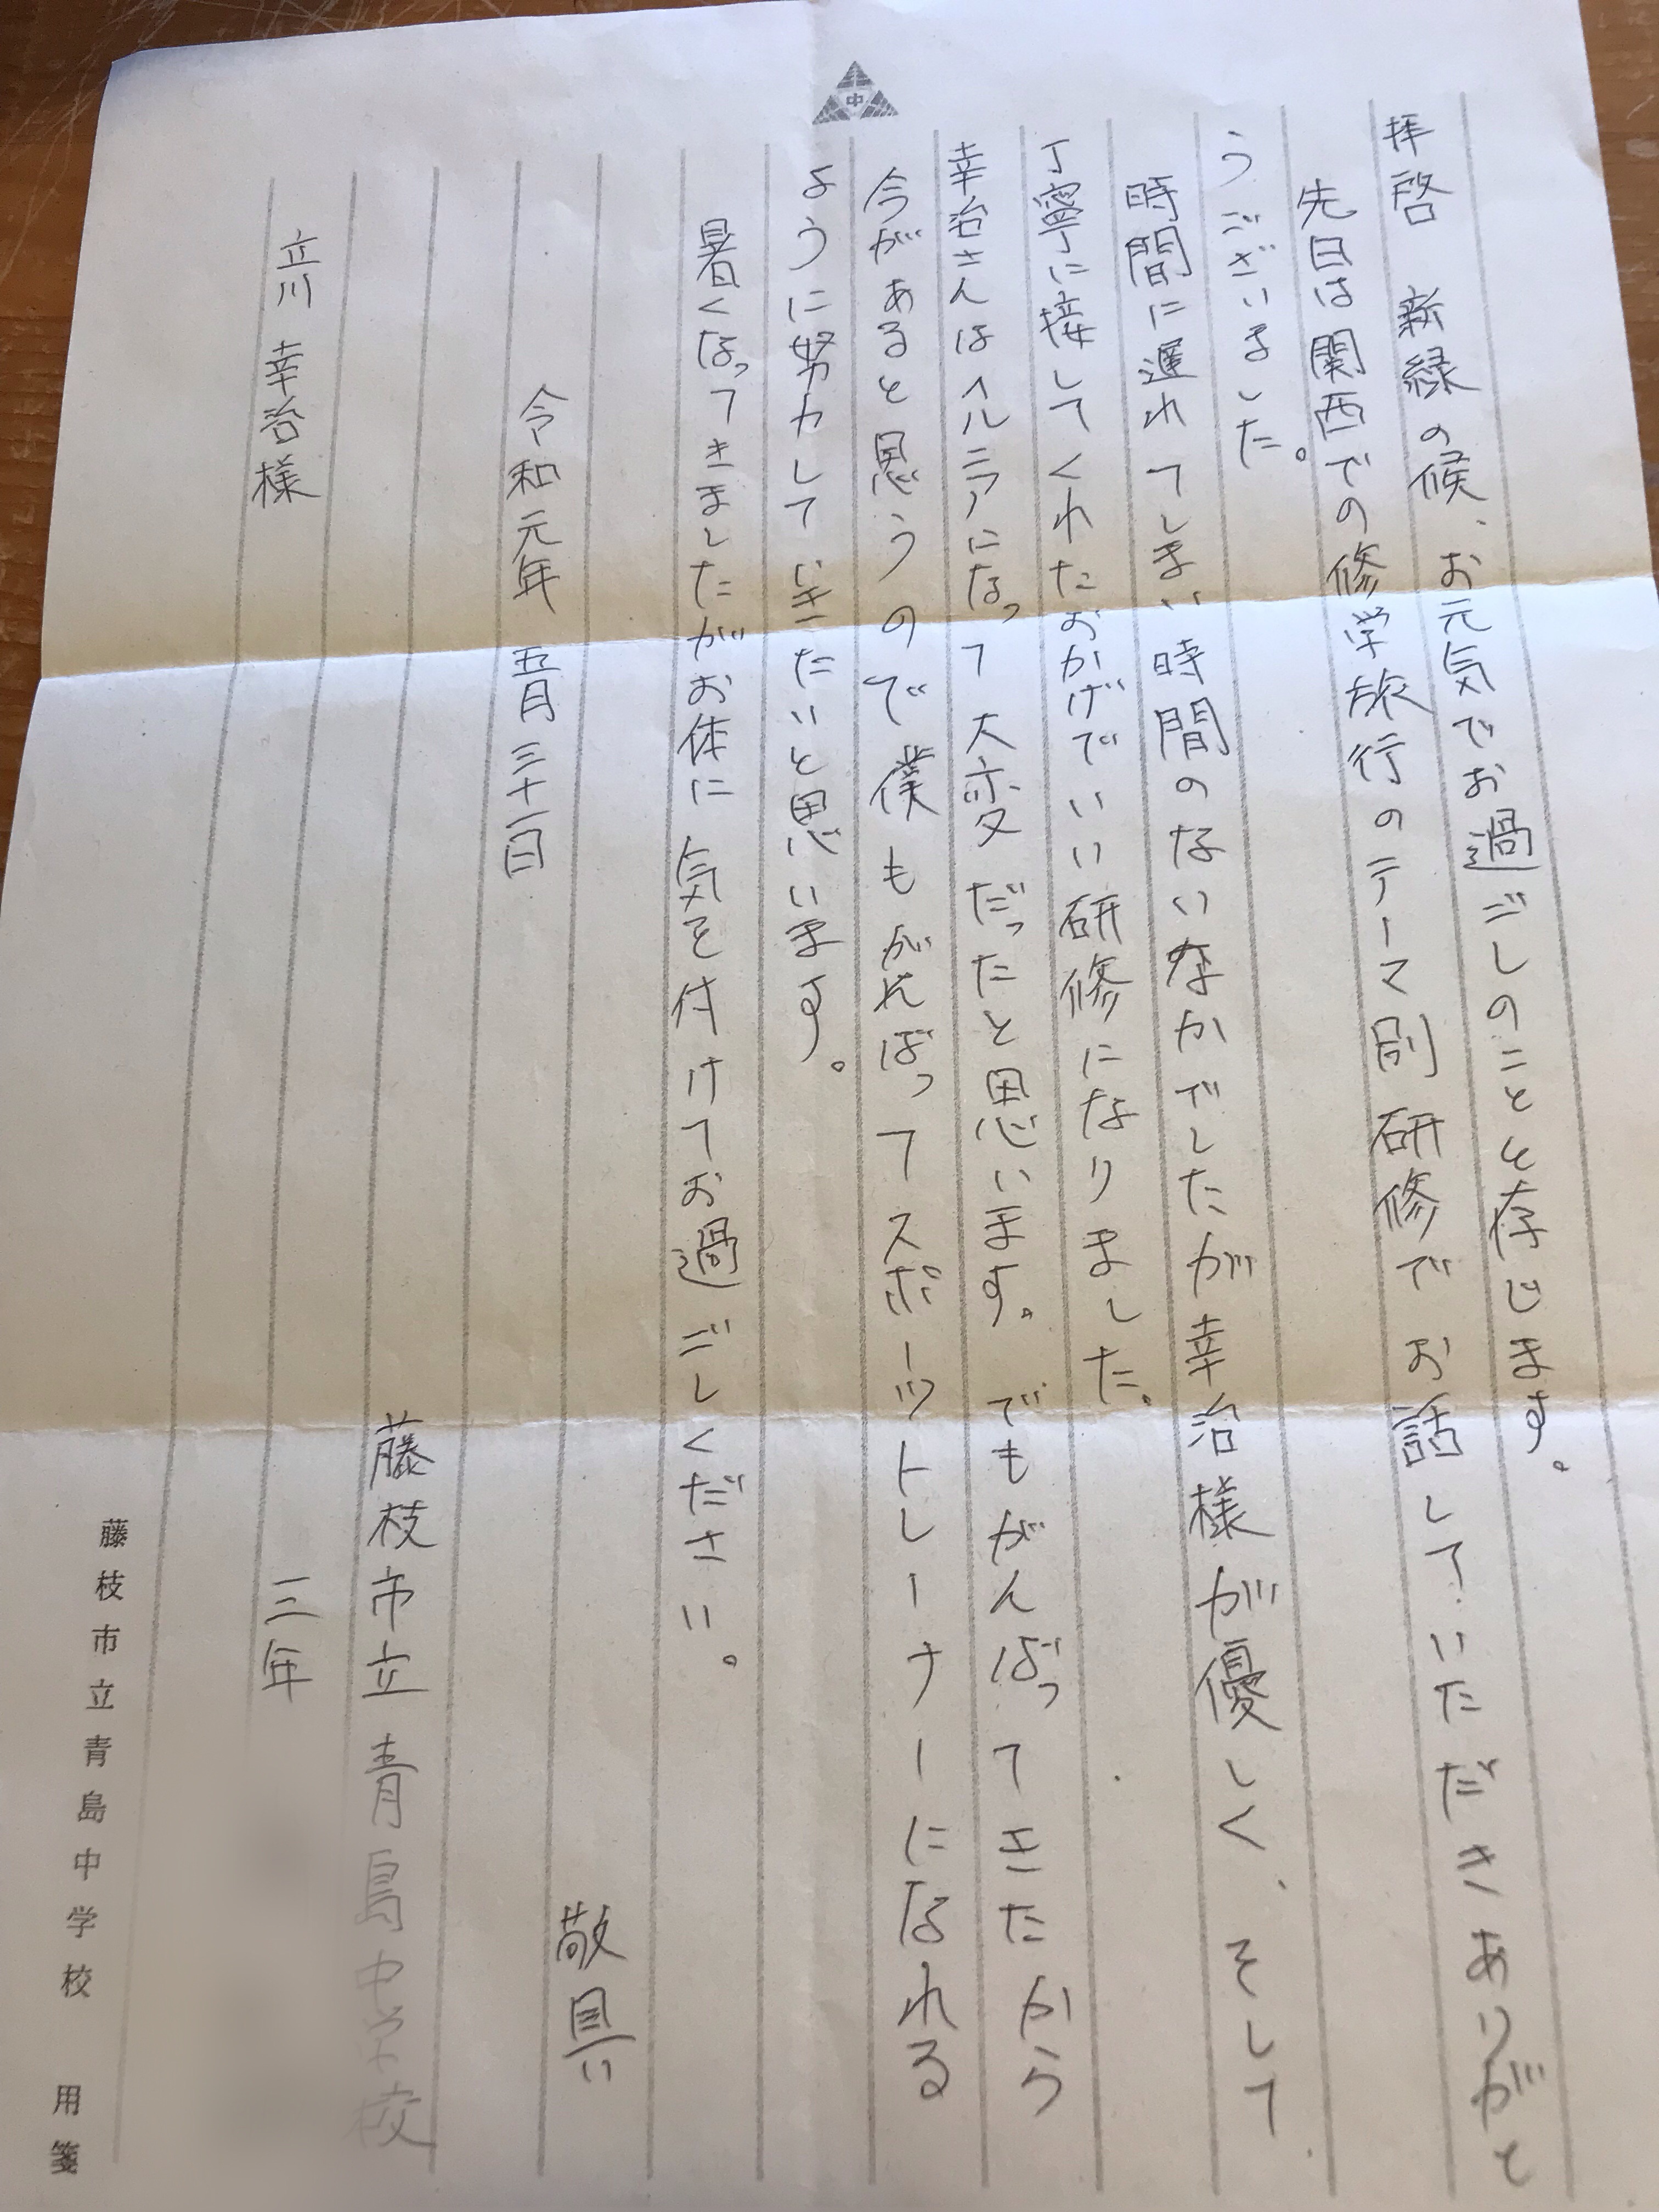 中
拝啓 新緑の候、お元気でお過ごしのことと存じます。
先日は関西での修学旅行のテーマ別研修でお話していただきありがと
うございました。
時間に遅れてしまい時間のないなかでしたが幸治様が優しく、そして
丁寧に接してくれたおかげでいい研修になりました。
幸治さんはヘルニアになって大変だったと思います。でもがんばってきたから
今があると思うので僕もがんばってスポーツトレーナーになれる
ように努力していきたいと思います。
暑くなってきましたがお体に気を付けてお過ごしください。
敬具
令和元年 五月三十一日
藤枝市立青島中学校
三年
立川 幸治様
藤枝市立青島中学校 用箋